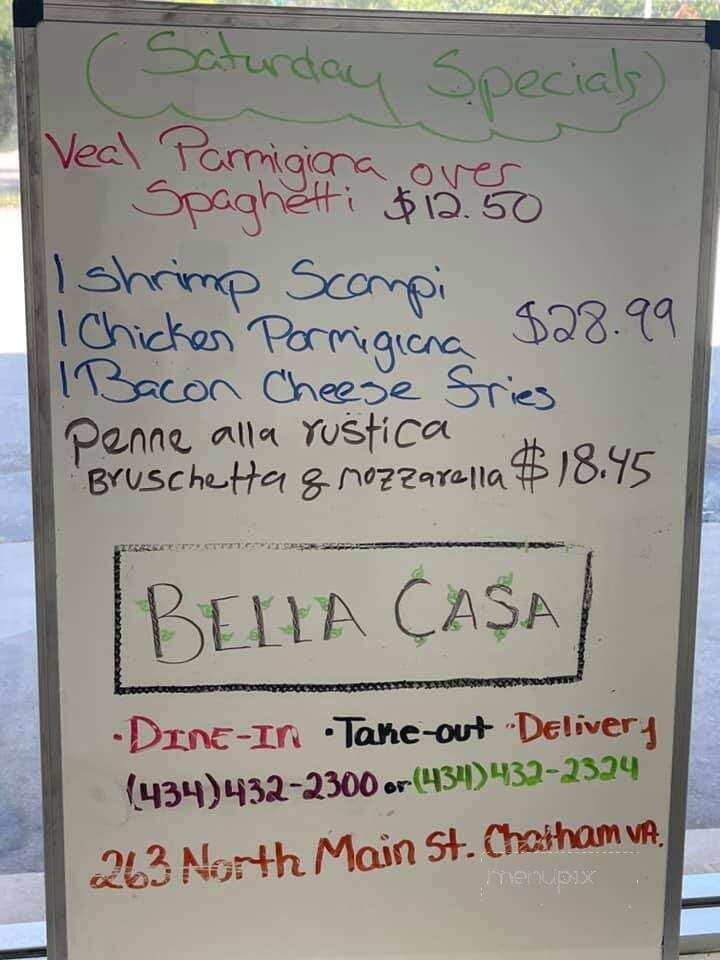 (Saturday Specials)
Veal Parmigiana over
Spaghetti $12.50
1 Shrimp Scampi
1 Chicken Parmigiana $28.99
1 Bacon Cheese fries
Penne alla rustica
Bruschetta & mozzarella $18.45
BELLA CASA
·DINE-IN ·Take-out ·Delivery
(434)432-2300 or (434)432-2324
263 North Main St. Chatham VA.
menupix